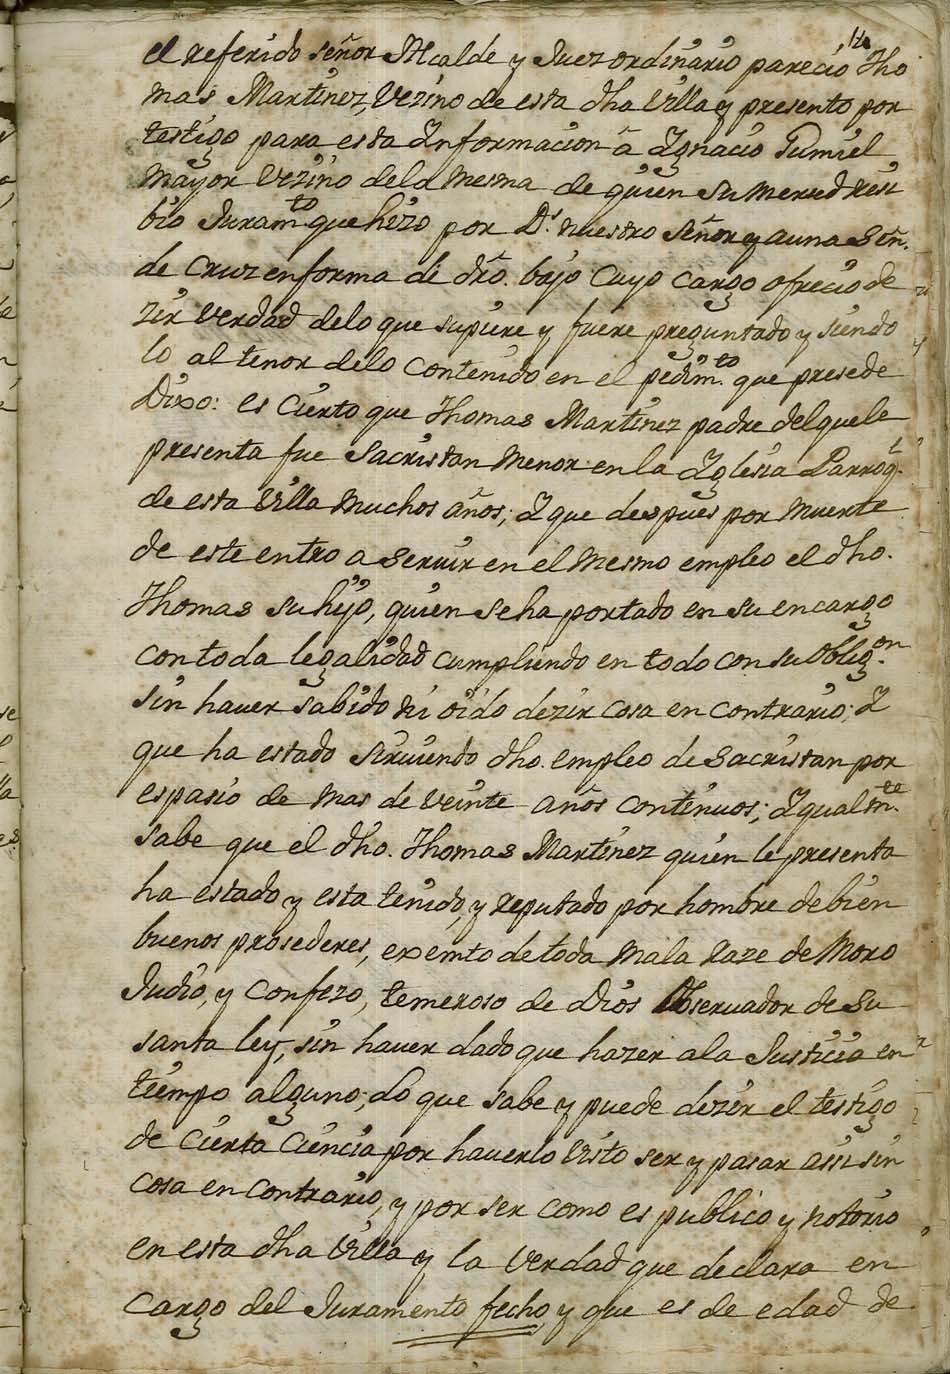 el referido señor Alcalde y Juez ordinario pareció Tho
mas Martinez, Vezino de esta dha Villa y presento por
testigo para esta Ynformacion â Ygnacio Gumiel
mayor Vezino dela mesma de quien su merced resi
bio Juram.to que hizo por D.s nuestro Señor y a una Señ.
de Cruz en forma de dro. bajo cuyo cargo ofrecio de
zir Verdad delo que supiere y fuere preguntado y siendo
lo al tenor delo Contenido en el pedim.to que presede
Dixo: es Cierto que Thomas Martinez padre del que le
presenta fue Sacristan Menor en la Yglesia Parroq.l
de esta Villa Muchos años; Y que despues por Muerte
de este entro a Servir en el Mesmo empleo el dho.
Thomas su hijo, quien se ha portado en su encargo
con toda legalidad cumpliendo en todo con su Oblig.on
sin haver sabido ni oido dezir cosa en Contrario; Y
que ha estado sirviendo dho. empleo de Sacristan por
espasio de mas de Veinte años continuos; Ygualm.te
sabe que el dho. Thomas Martinez quien le presenta
ha estado y esta tenido, y reputado por hombre de bien
buenos prosederes, exemto de toda Mala Raze de Moro
Judio, y Confezo, temeroso de Dios Observador de Su
santa ley, sin haver dado que hazer a la Justicia en
tiempo alguno; lo que sabe y puede dezir el testigo
de Cierta Ciencia por haverlo Visto ser y pasar assi sin
cosa en Contrario, y por ser como es publico y notorio
en esta dha Villa y la Verdad que declara en
Cargo del Juramento fecho, y que es de edad de